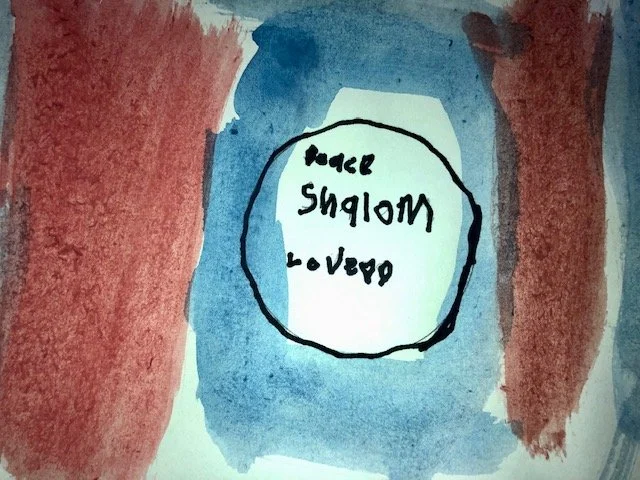 Peace
ShaloM
LoVepp